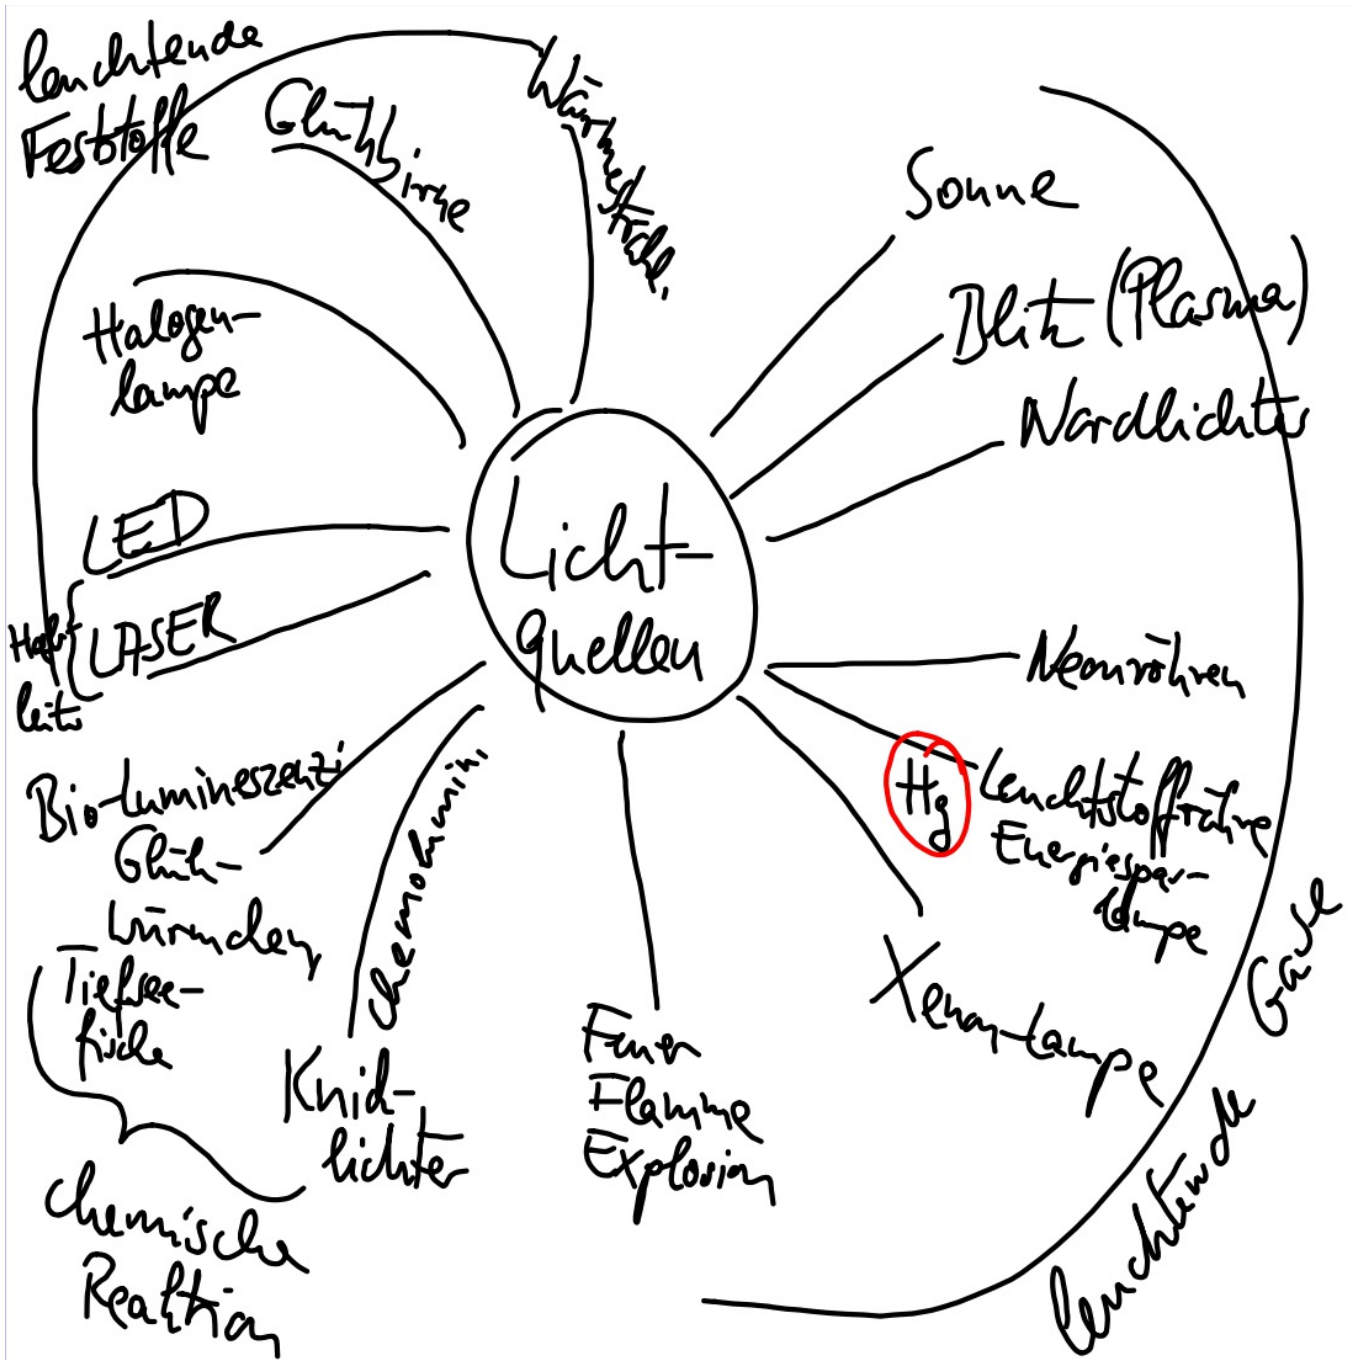 leuchtende
Feststoffe
Glühbirne
Wärmestrahl.
Halogen-
lampe
LED
LASER
Halb-
leiter
Licht-
quellen
Sonne
Blitz (Plasma)
Nordlichter
Neonröhren
Hg
Leuchtstoffröhre
Energiespar-
lampe
Xenon-Lampe
leuchtende
Gase
Feuer
Flamme
Explosion
Chemolumin.
Knick-
lichter
Bio-Lumineszenz:
Glüh-
würmchen
Tiefsee-
fische
Chemische
Reaktion